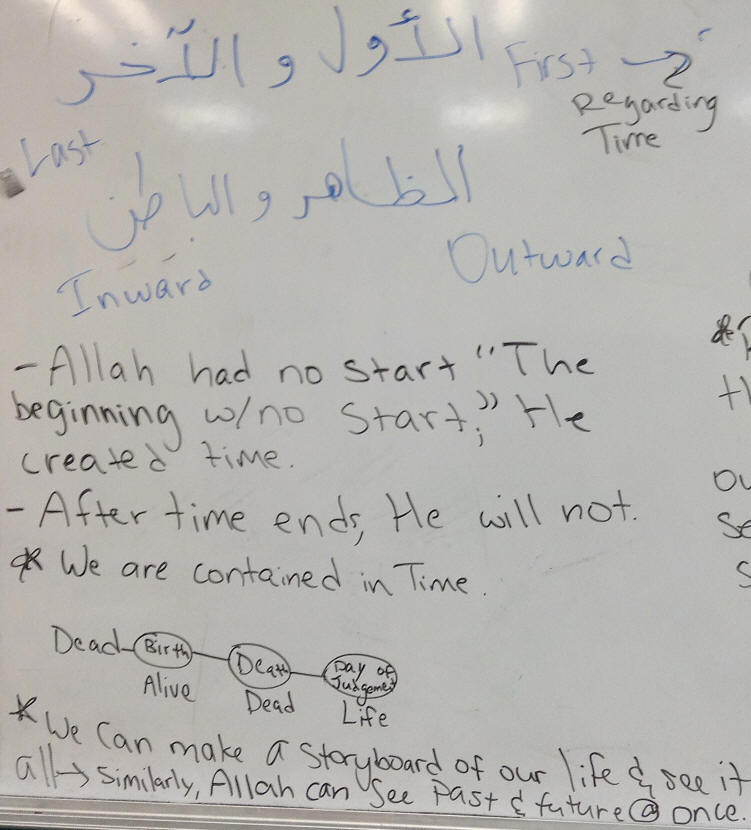 الأول و الآخر First →
Regarding
Time
Last
الظاهر و الباطن
Inward Outward
- Allah had no start "The
beginning w/no start;" He
created time.
- After time ends, He will not.
* We are contained in Time.
Dead - Birth - Death - Day of
Judgement
Alive Dead Life
* We can make a storyboard of our life & see it
all → Similarly, Allah can see past & future @ once.